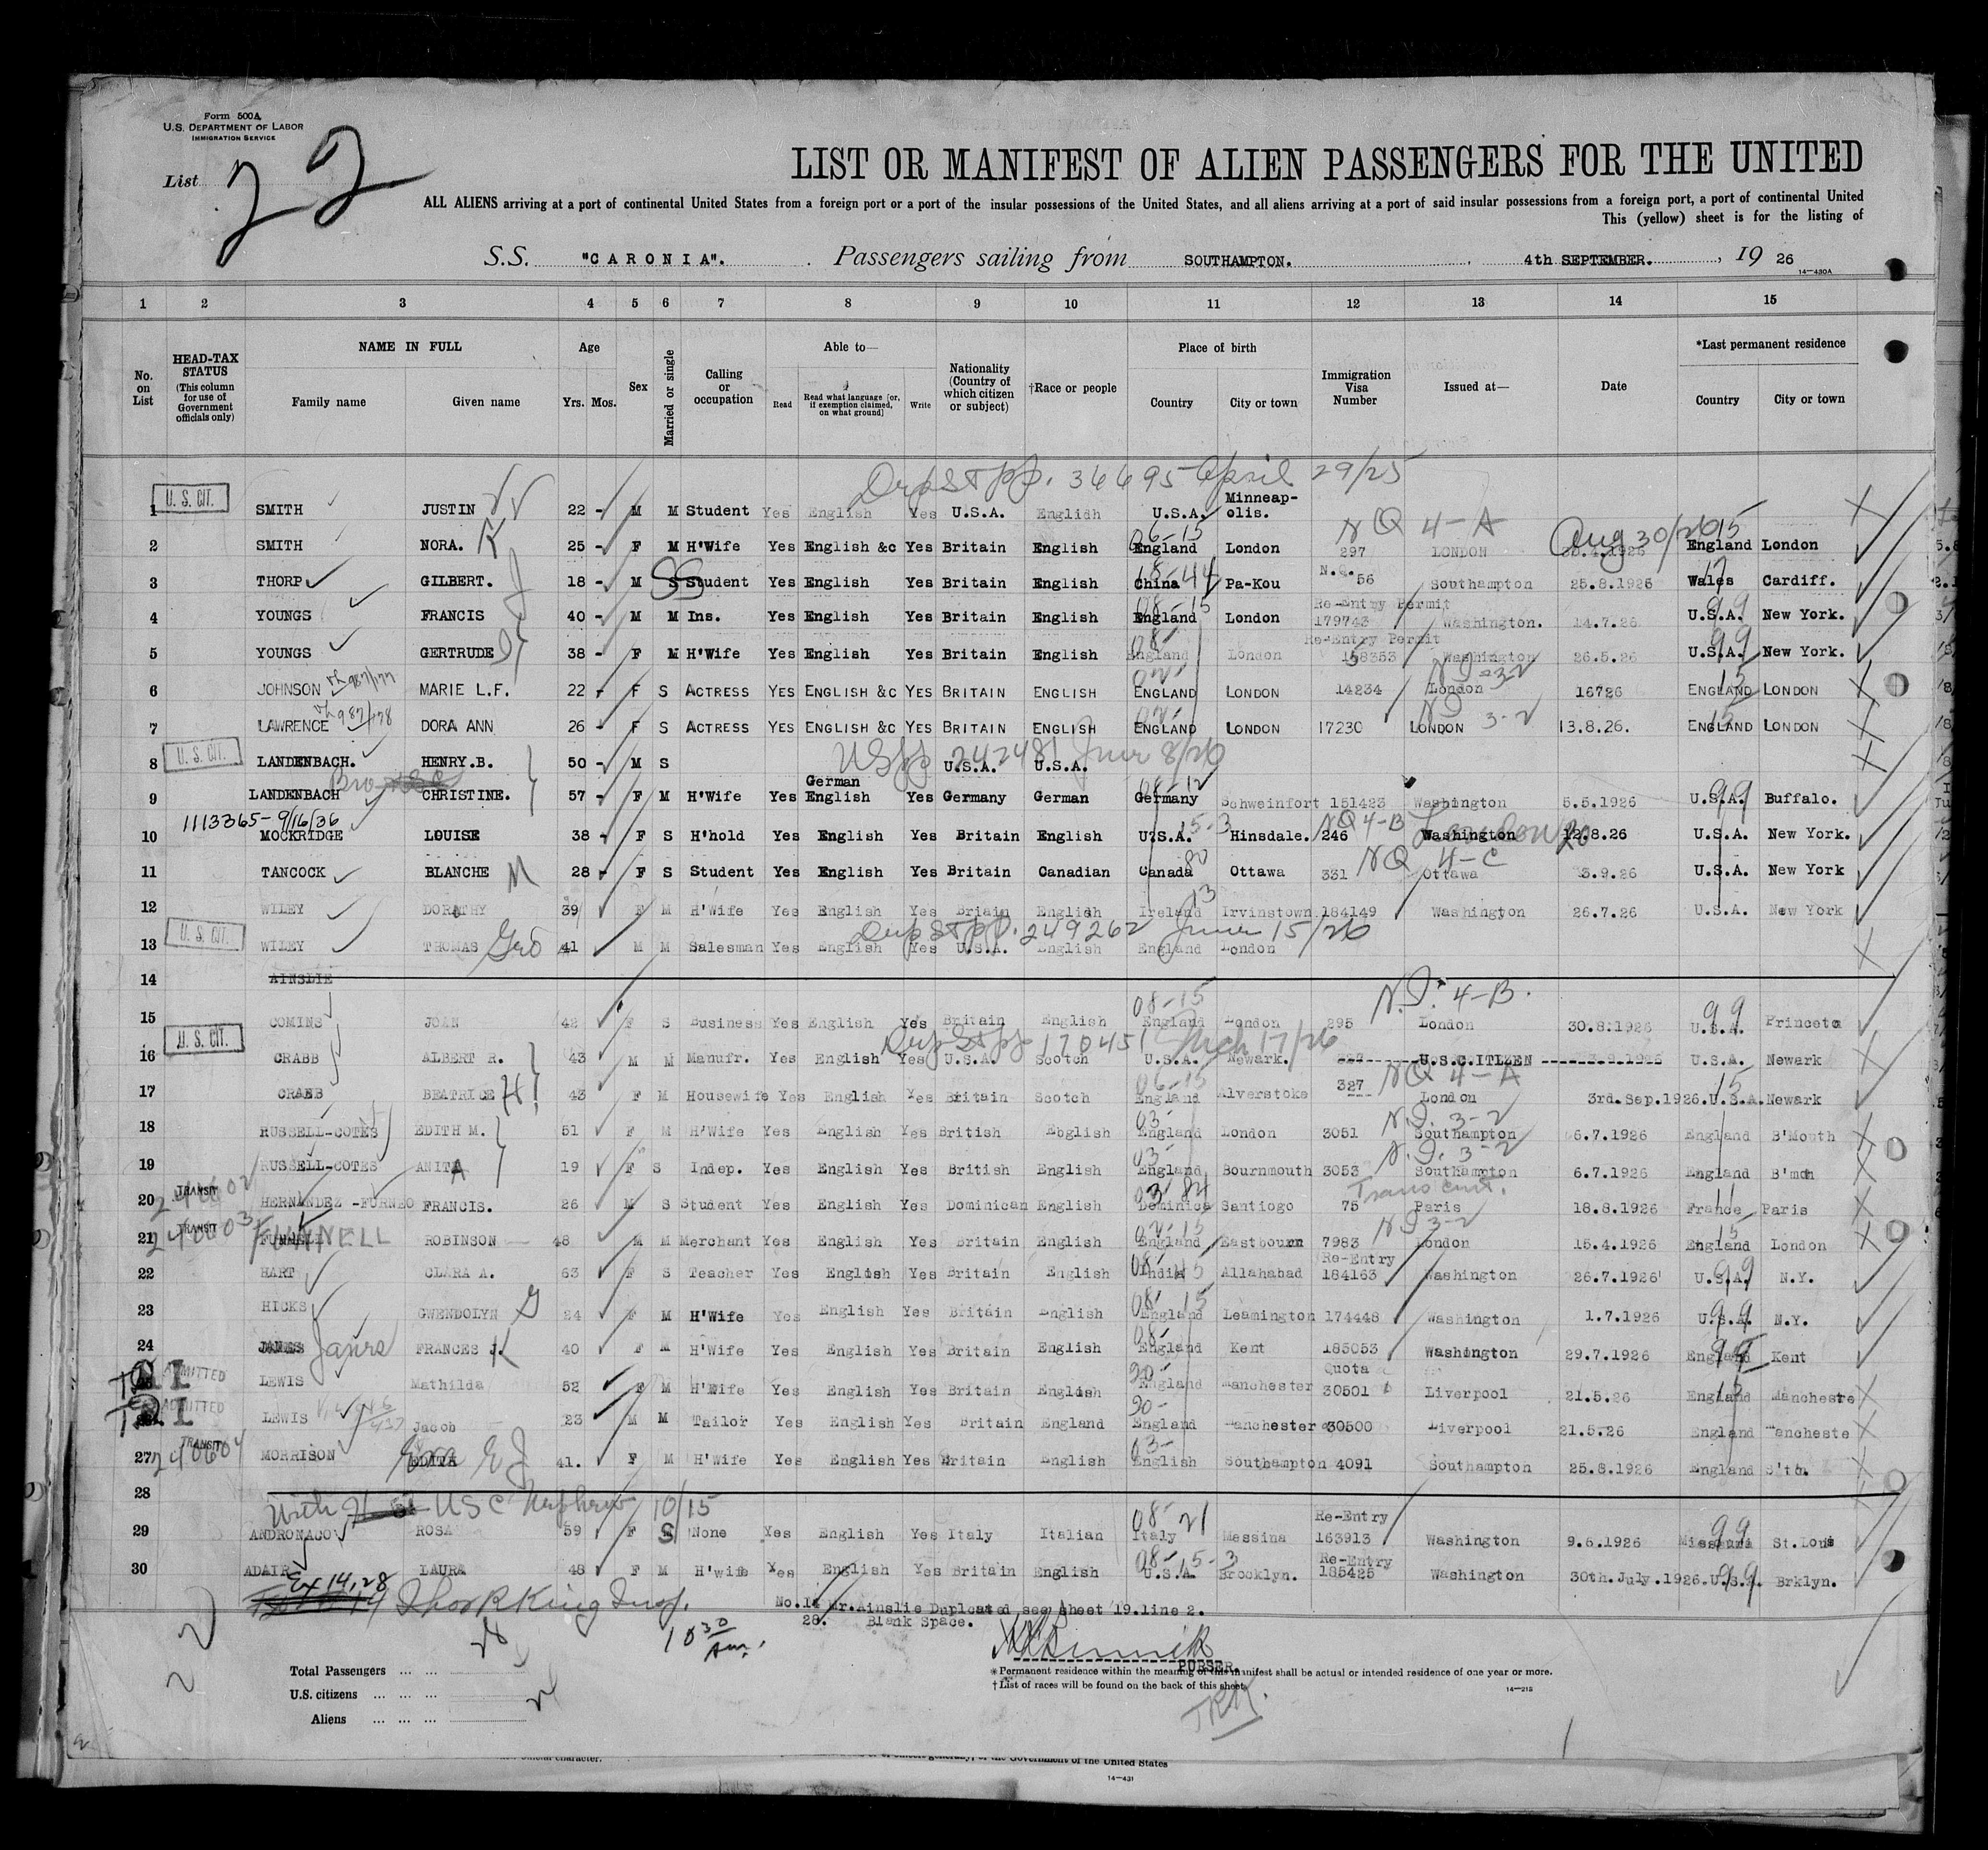 Form 500A
U.S. DEPARTMENT OF LABOR
IMMIGRATION SERVICE
List 22
LIST OR MANIFEST OF ALIEN PASSENGERS FOR THE UNITED
ALL ALIENS arriving at a port of continental United States from a foreign port or a port of the insular possessions of the United States, and all aliens arriving at a port of said insular possessions from a foreign port, a port of continental United
This (yellow) sheet is for the listing of
S.S. "CARONIA". Passengers sailing from SOUTHAMPTON. 4th SEPTEMBER. , 19 26
14—430A
1 2 3 4 5 6 7 8 9 10 11 12 13 14 15
No. on List
HEAD-TAX STATUS (This column for use of Government officials only)
NAME IN FULL
Family name Given name
Age
Yrs. Mos.
Sex
Married or single
Calling or occupation
Able to—
Read Read what language [or, if exemption claimed, on what ground] Write
Nationality (Country of which citizen or subject)
†Race or people
Place of birth
Country City or town
Immigration Visa Number
Issued at—
Date
*Last permanent residence
Country City or town
36695 April 29/25
1 U. S. CIT. SMITH JUSTIN 22 - M M Student Yes English Yes U.S.A. Englidh U.S.A. Minneap-olis.
NQ 4-A Aug 30/26
06-15 15
2 SMITH NORA. K 25 - F M H'Wife Yes English &c Yes Britain English England London 297 LONDON 1926 England London
3 THORP GILBERT. 18 - M S Student Yes English Yes Britain English China Pa-Kou N.Q. 56 Southampton 25.8.1926 Wales Cardiff.
08-15 Re-Entry Permit 99
4 YOUNGS FRANCIS 40 - M M Ins. Yes English Yes Britain English England London 179743 Washington. 14.7.26 U.S.A. New York.
Re-Entry Permit 99
5 YOUNGS GERTRUDE 38 - F M H'Wife Yes English Yes Britain English England London 158353 Washington 26.5.26 U.S.A. New York.
6 JOHNSON MARIE L.F. 22 - F S ACTRESS YES ENGLISH &C YES BRITAIN ENGLISH ENGLAND LONDON 14234 London 16726 ENGLAND LONDON
7 LAWRENCE DORA ANN 26 - F S ACTRESS YES ENGLISH &C YES BRITAIN ENGLISH ENGLAND LONDON 17230 LONDON 3-2 13.8.26. ENGLAND LONDON
8 U. S. CIT. LANDENBACH. HENRY.B. 50 - M S 242481 June 8/26 U.S.A. U.S.A.
9 LANDENBACH CHRISTINE. 57 - F M H'Wife Yes German English Yes Germany German Germany Schweinfort 151423 Washington 5.5.1926 U.S.A. Buffalo.
1113365 - 9/16/36
10 MOCKRIDGE LOUISE 38 - F S H'hold Yes English Yes Britain English U.S.A. Hinsdale. 246 NQ 4-B Washington London 12.8.26 U.S.A. New York.
NQ 4-C
11 TANCOCK BLANCHE M 28 - F S Student Yes English Yes Britain Canadian Canada Ottawa 331 Ottawa 3.9.26 U.S.A. New York
12 WILEY DOROTHY 39 F M H'Wife Yes English Yes Briain English Ireland Irvinstown 184149 Washington 26.7.26 U.S.A. New York
249262 June 15/26
13 U. S. CIT. WILEY THOMAS 41 M M Salesman Yes English Yes U.S.A. English England London
14 AINSLIE
08-15 N.I. 4-B. 99
15 COMINS JOAN 42 F S Business Yes English Yes Britain English England London 295 London 30.8.1926 U.S.A. Princeto
170451 Mch 17/26
16 U. S. CIT. CRABB ALBERT R. 43 M M Manufr. Yes English Yes U.S.A. Scotch U.S.A. Newark. U.S.C.ITLZEN U.S.A. Newark
06-15 NQ 4-A 15
17 CRABB BEATRICE H 43 F M Housewife Yes English Yes Britain Scotch England Alverstoke 327 London 3rd.Sep.1926.U.S.A.Newark
03- N.I. 3-2
18 RUSSELL-COTES EDITH M. 51 F M H'Wife Yes English Yes British Ebglish England London 3051 Southampton 6.7.1926 England B'Mouth
03- N.I. 3-2
19 RUSSELL-COTES ANITA 19 F S Indep. Yes English Yes British English England Bournmouth 3053 Southampton 6.7.1926 England B'mth
20 TRANSIT HERNANDEZ -FURNEO FRANCIS. 26 M S Student Yes English Yes Dominican English Dominica Santiogo 75 Paris 18.8.1926 France Paris
21 TRANSIT FUNNELL ROBINSON 48 M M Merchant Yes English Yes Britain English England Eastbourn 7983 London 15.4.1926 England London
22 HART CLARA A. 63 F S Teacher Yes English Yes Britain English India Allahabad Re-Entry 184163 Washington 26.7.1926 U.S.A. N.Y.
23 HICKS GWENDOLYN G 24 F M H'Wife Yes English Yes Britain English England Leamington 174448 Washington 1.7.1926 U.S.A. N.Y.
24 JAMES James FRANCES J. K 40 F M H'Wife Yes English Yes Britain English England Kent 183053 Washington 29.7.1926 England Kent
ADMITTED LEWIS Mathilda 52 F M H'Wife Yes English Yes Britain English England Manchester Quota 30501 Liverpool 21.5.26 England Mancheste
ADMITTED LEWIS Jacob 23 M M Tailor Yes English Yes Britain England England Manchester 30500 Liverpool 21.5.26 England Mancheste
27 TRANSIT MORRISON EDITH 41. F M H'Wife Yes English Yes Britain English English Southampton 4091 Southampton 25.8.1926 England S'th.
28
With USC Nephew 10/15
29 ANDRONACO ROSA 59 F S None Yes English Yes Italy Italian Italy Messina Re-Entry 163913 Washington 9.6.1926 Missouri St.Louis
30 ADAIR LAURA 48 F M H'wife Yes English Yes Britain English U.S.A. Brooklyn. Re-Entry 185425 Washington 30th.July.1926.U.S.A. Brklyn.
Ex 14, 28
Thor R King Insp.
10 30 Am.
No.14 Mr.Ainslie Duplcated see sheet 19.line 2.
28. Blank Space.
PURSER.
Total Passengers ... ...
U.S. citizens ... ... ...
Aliens ... ... ...
* Permanent residence within the meaning of this manifest shall be actual or intended residence of one year or more.
† List of races will be found on the back of this sheet.
14—213
TRK.
of the Government of the United States
14—431